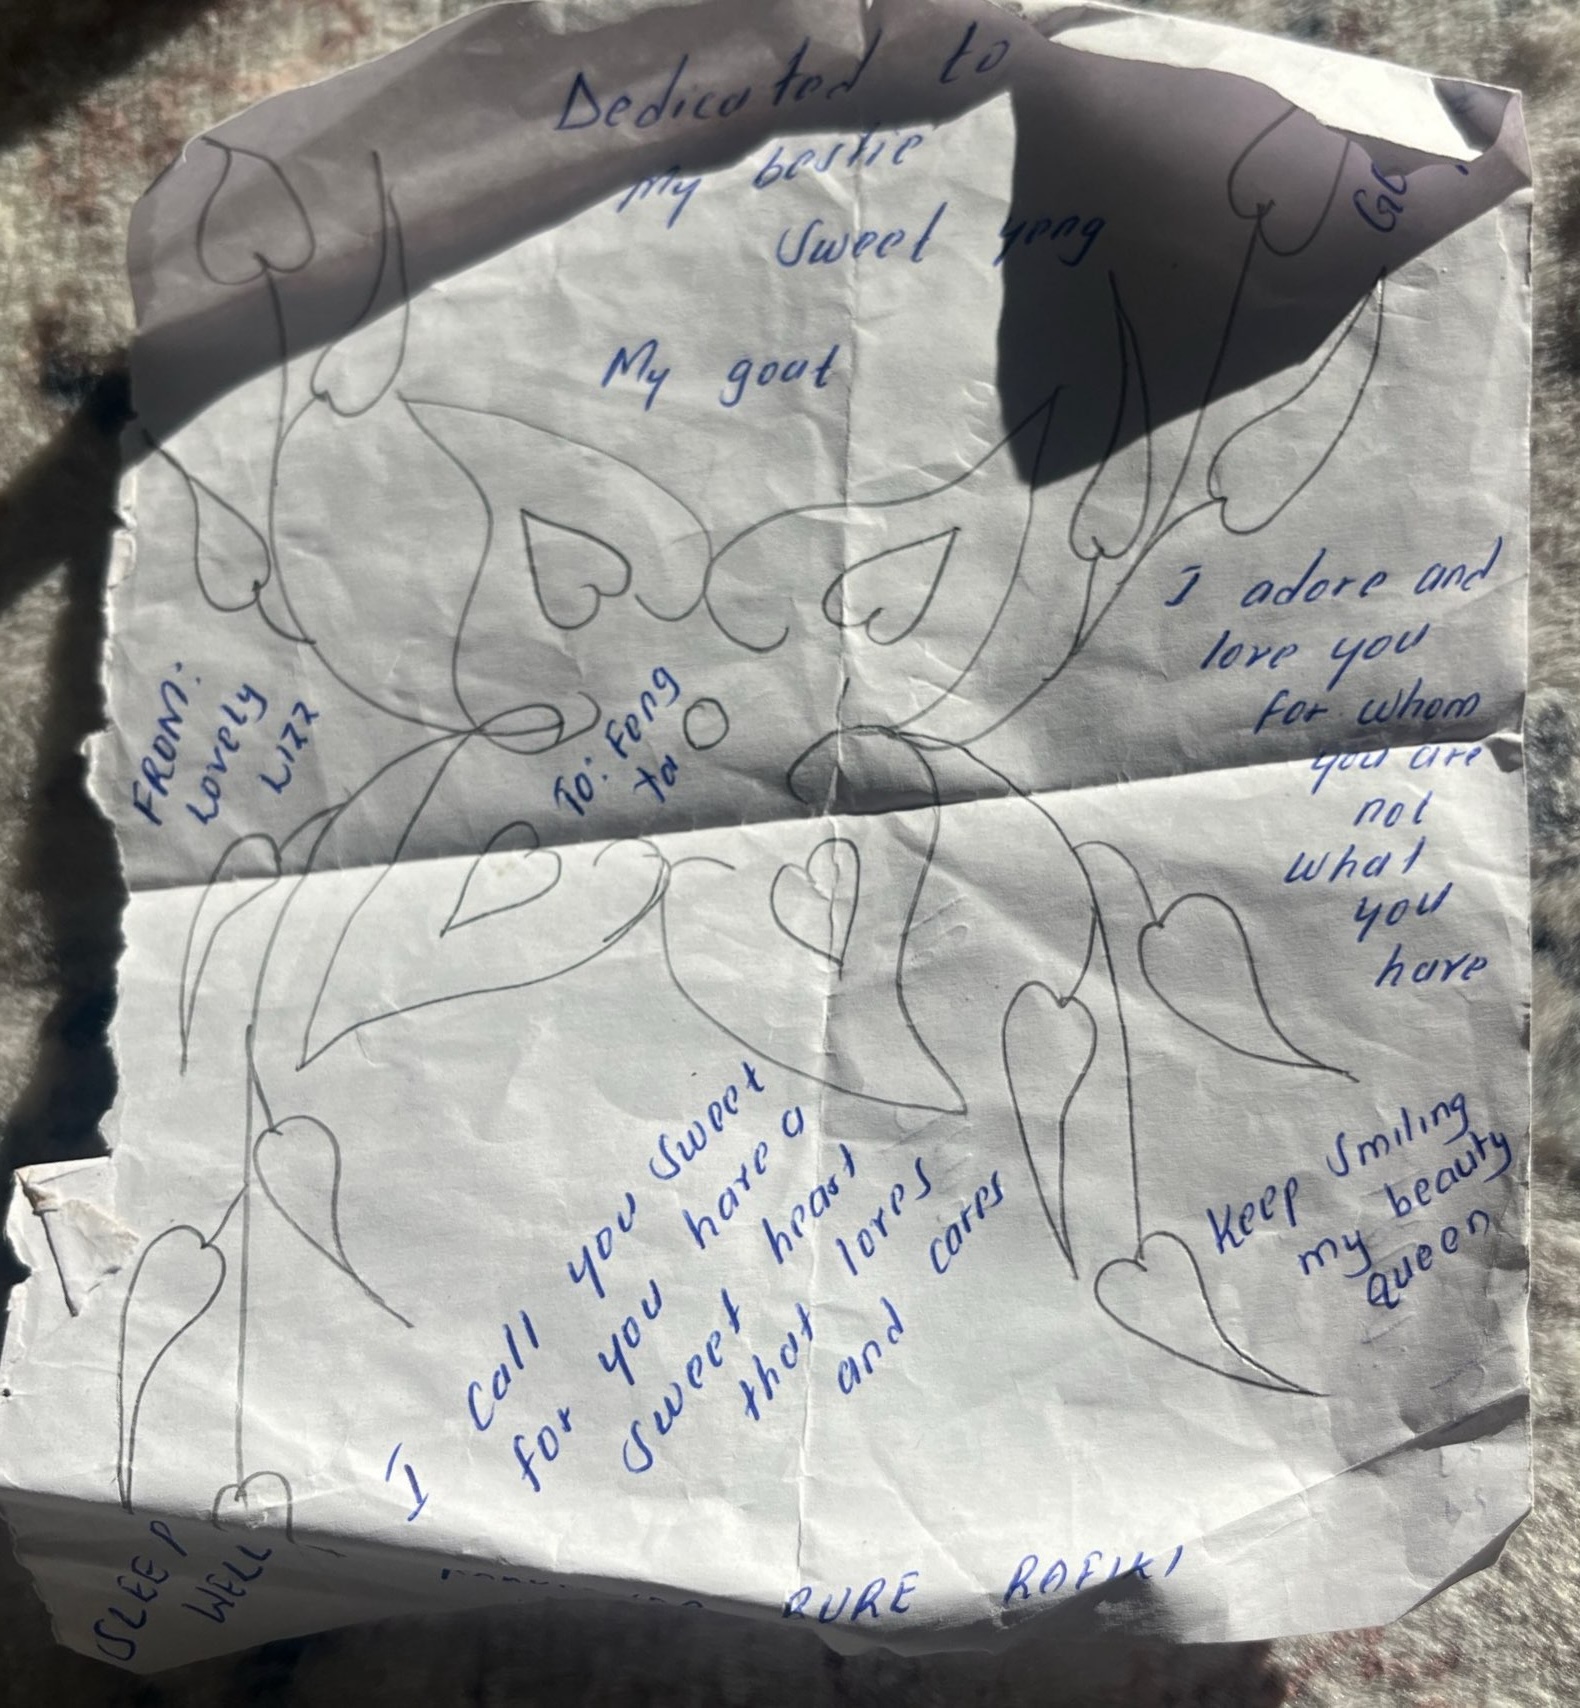 Dedicated to
My bestie
Sweet yeng
My goat
I adore and
love you
for whom
you are
not
what
you
have
FROM:
Lovely
Lizz
To: Feng
xa
I call you sweet
for you have a
sweet heart
that loves
and cares
Keep smiling
my beauty
queen
SLEEP
WELL
RAFIKI